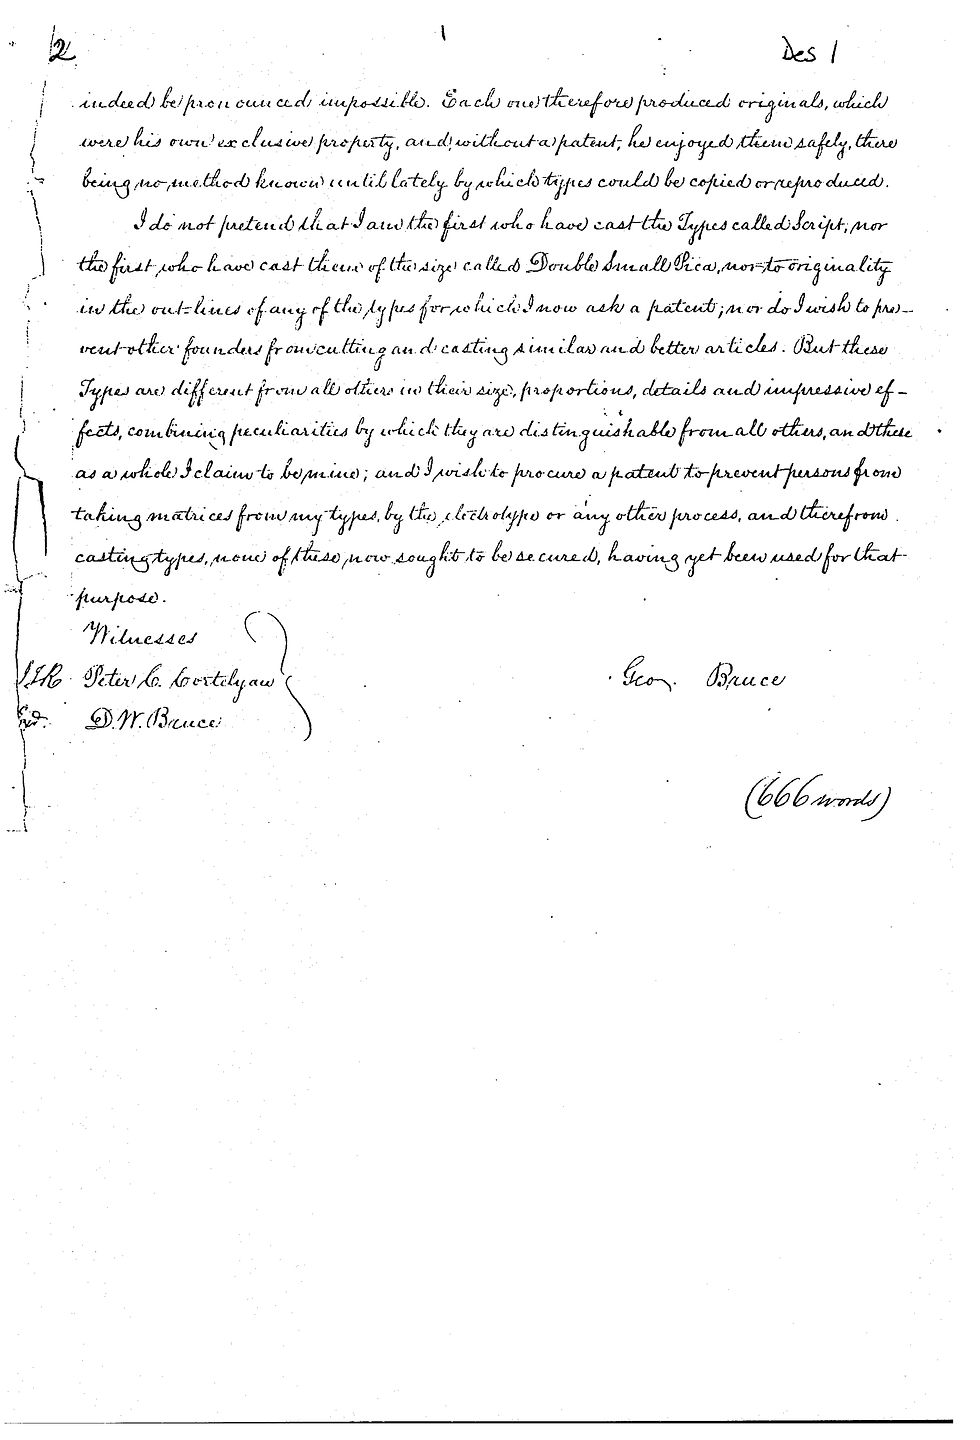 2 1 Des 1
indeed be pronounced impossible. Each one therefore produced originals, which
were his own exclusive property, and, without a patent, he enjoyed them safely, there
being no method known until lately by which types could be copied or reproduced.
I do not pretend that I am the first who have cast the Types called Script, nor
the first who have cast them of the size called Double Small Pica, nor to originality
in the out-lines of any of the types for which I now ask a patent; nor do I wish to pre-
vent other founders from cutting and casting similar and better articles. But these
Types are different from all others in their size, proportions, details and impressive ef-
fects, combining peculiarities by which they are distinguishable from all others, and these
as a whole I claim to be mine; and I wish to procure a patent to prevent persons from
taking matrices from my types, by the electrotype or any other process, and therefrom
casting types, none of these now sought to be secured, having yet been used for that
purpose.
Witnesses
Peter C. Cortelyou Geo. Bruce
D. W. Bruce
(666 words)